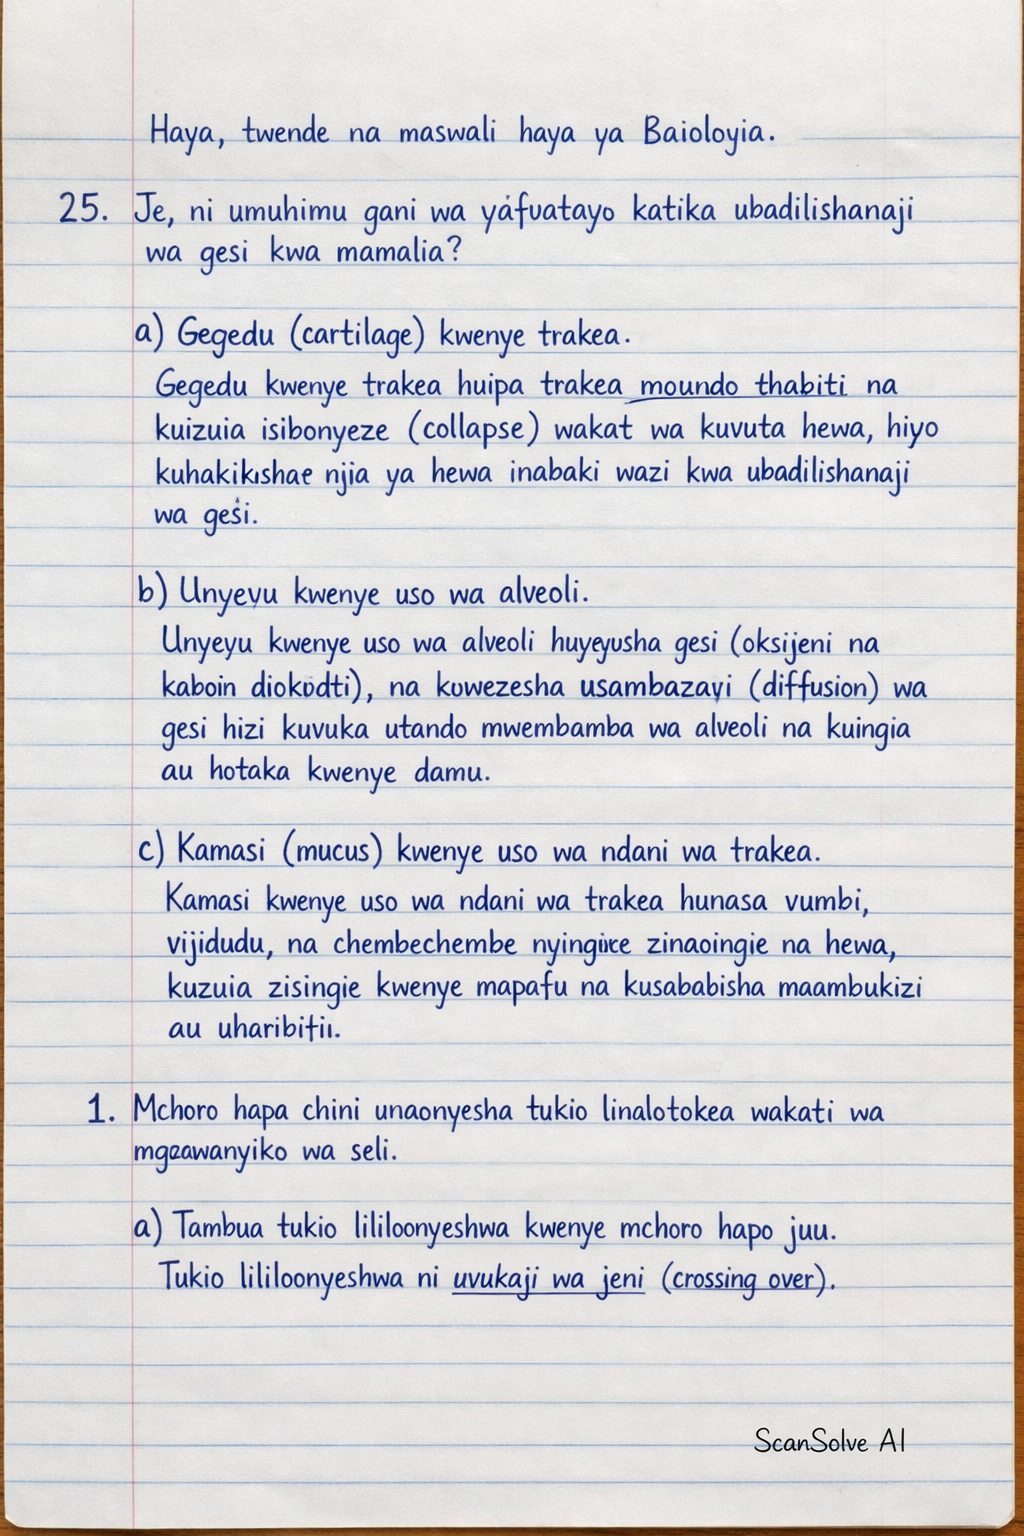 Haya, twende na maswali haya ya Baioloyia.
25. Je, ni umuhimu gani wa yáfuatayo katika ubadilishanaji
wa gesi kwa mamalia?
a) Gegedu (cartilage) kwenye trakea.
Gegedu kwenye trakea huipa trakea moundo thabiti na
kuizuia isibonyeze (collapse) wakat wa kuvuta hewa, hiyo
kuhakikishae njia ya hewa inabaki wazi kwa ubadilishanaji
wa gesi.
b) Unyevu kwenye uso wa alveoli.
Unyeyu kwenye uso wa alveoli huyeyusha gesi (oksijeni na
kaboin diokodti), na kuwezesha usambazayi (diffusion) wa
gesi hizi kuvuka utando mwembamba wa alveoli na kuingia
au hotaka kwenye damu.
c) Kamasi (mucus) kwenye uso wa ndani wa trakea.
Kamasi kwenye uso wa ndani wa trakea hunasa vumbi,
vijidudu, na chembechembe zinaoingie na hewa,
kuzuia zisingie kwenye mapafu na kusababisha maambukizi
au uharibifii.
1. Mchoro hapa chini unaonyesha tukio linalotokea wakati wa
mgzawanyiko wa seli.
a) Tambua tukio lililoonyeshwa kwenye mchoro hapo juu.
Tukio lililoonyeshwa ni uvukaji wa jeni (crossing over).
ScanSolve AI